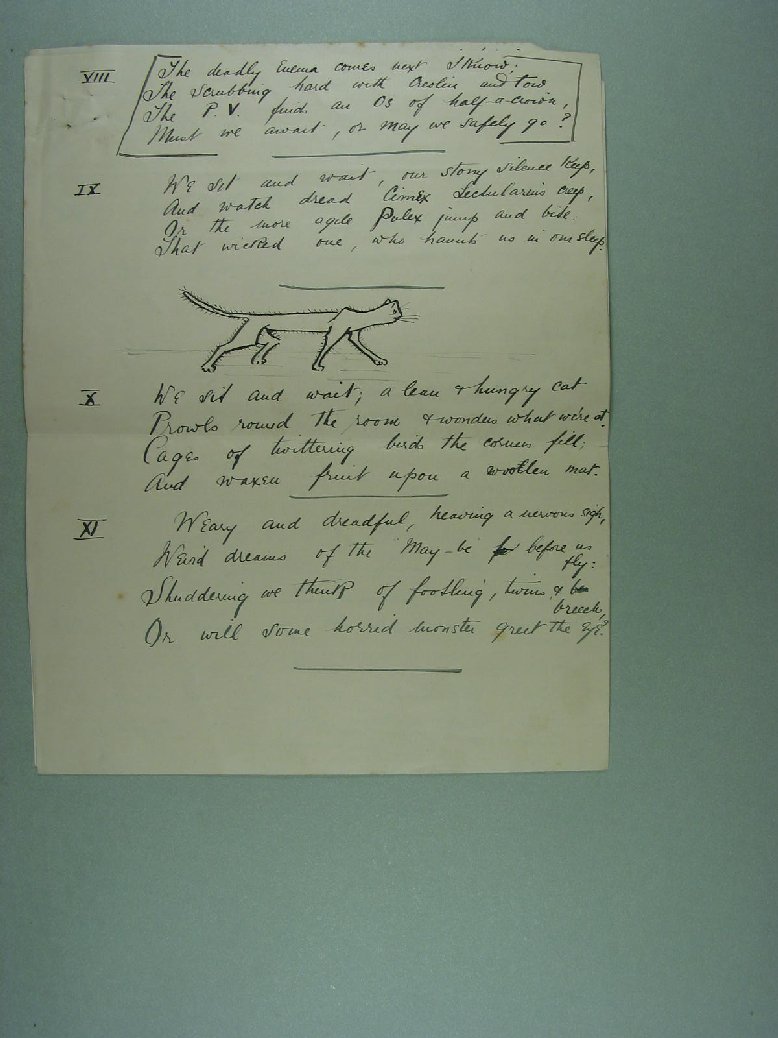 VIII
The deadly Enema comes next I know;
The Scrubbing hard with Creolin and tow,
The P.V. finds an Os of half-a-crown,
Must we await, or may we safely go?
IX
We sit and wait, our stony silence keep,
And watch dread Cimex Lectularius creep,
Or the more agile Pulex jump and bite
That wicked one, who haunts us in our sleep.
X
We sit and wait; a lean & hungry cat
Prowls round the room & wonders what we're at.
Cages of twittering birds the corners fill;
And waxen fruit upon a woollen mat.
XI
Weary and dreadful, heaving a nervous sigh,
Weird dreams of the "May-be" before us
fly:
Shuddering we think of footling, twins, &
breech,
Or will some horrid monster greet the eye?